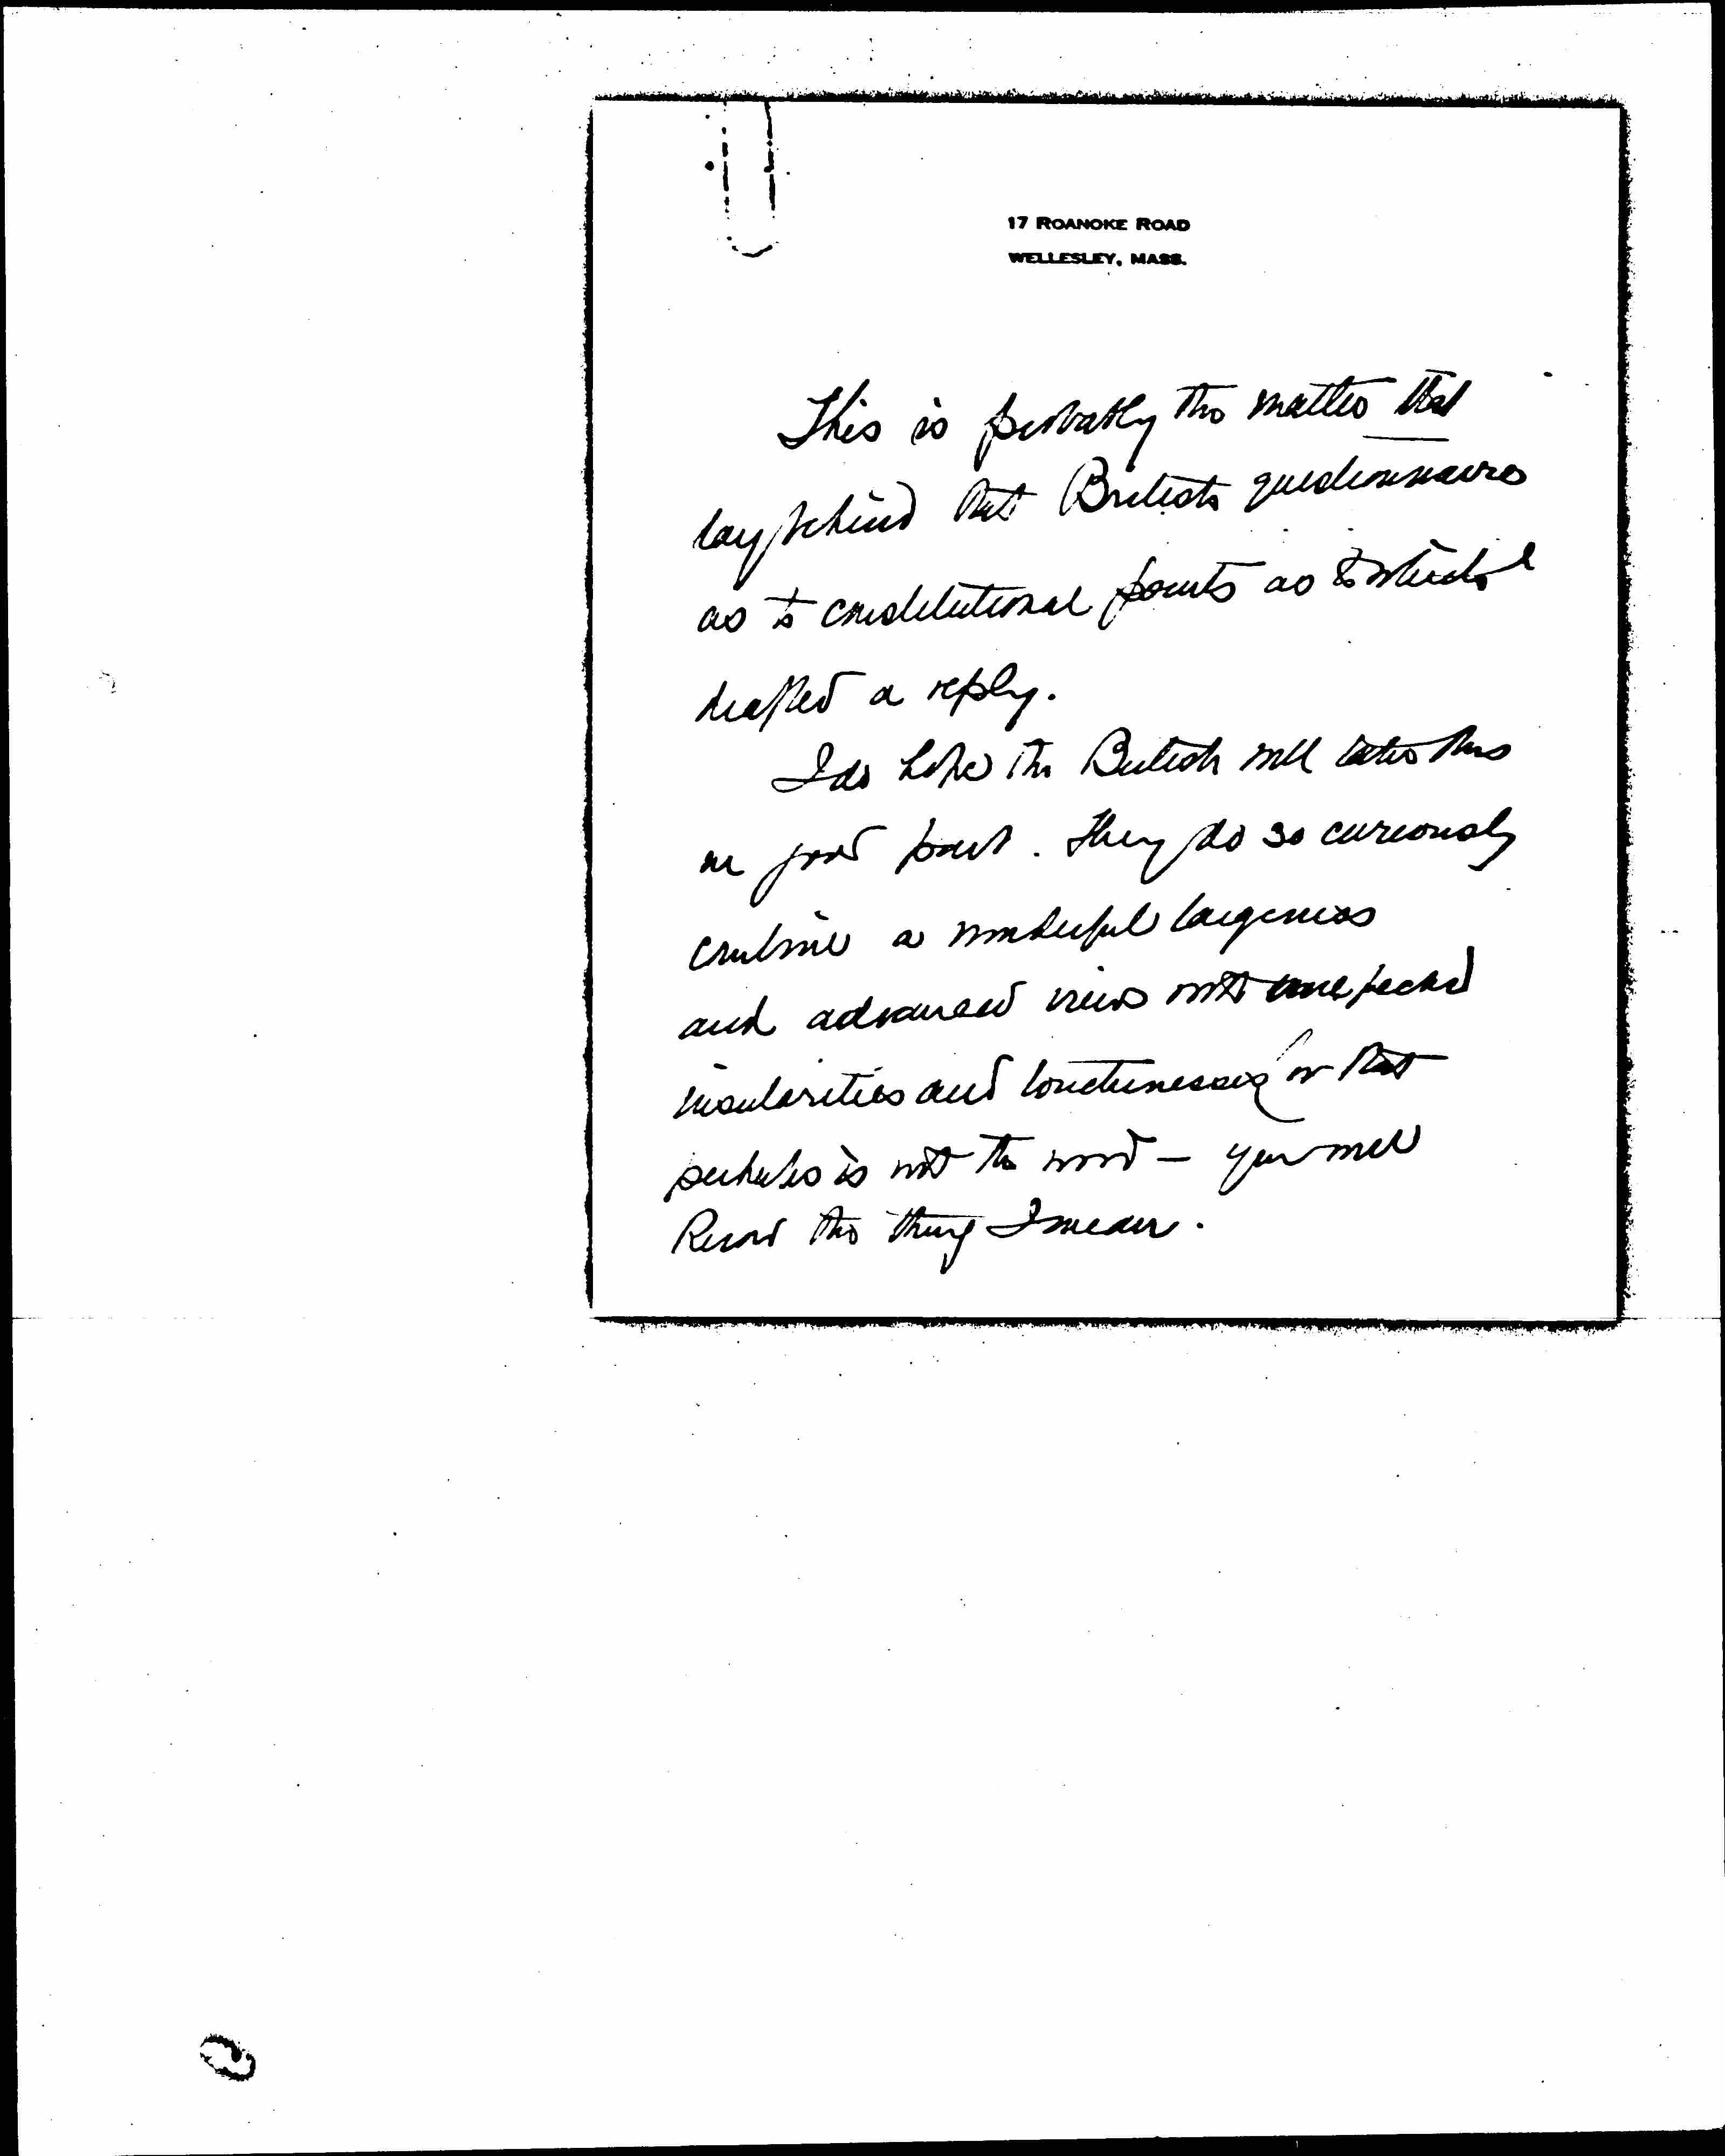 17 ROANOKE ROAD
WELLESLEY, MASS.
This is probably the matter that
lay behind that British questionnaire
as to constitutional points as to which I
drafted a reply.
I do hope the British will take this
in good part. They do so curiously
combine a wonderful largeness
and advanced view with unexpected
insularities and touchinesses or that
perhaps is not the word — you will
know the thing I mean.